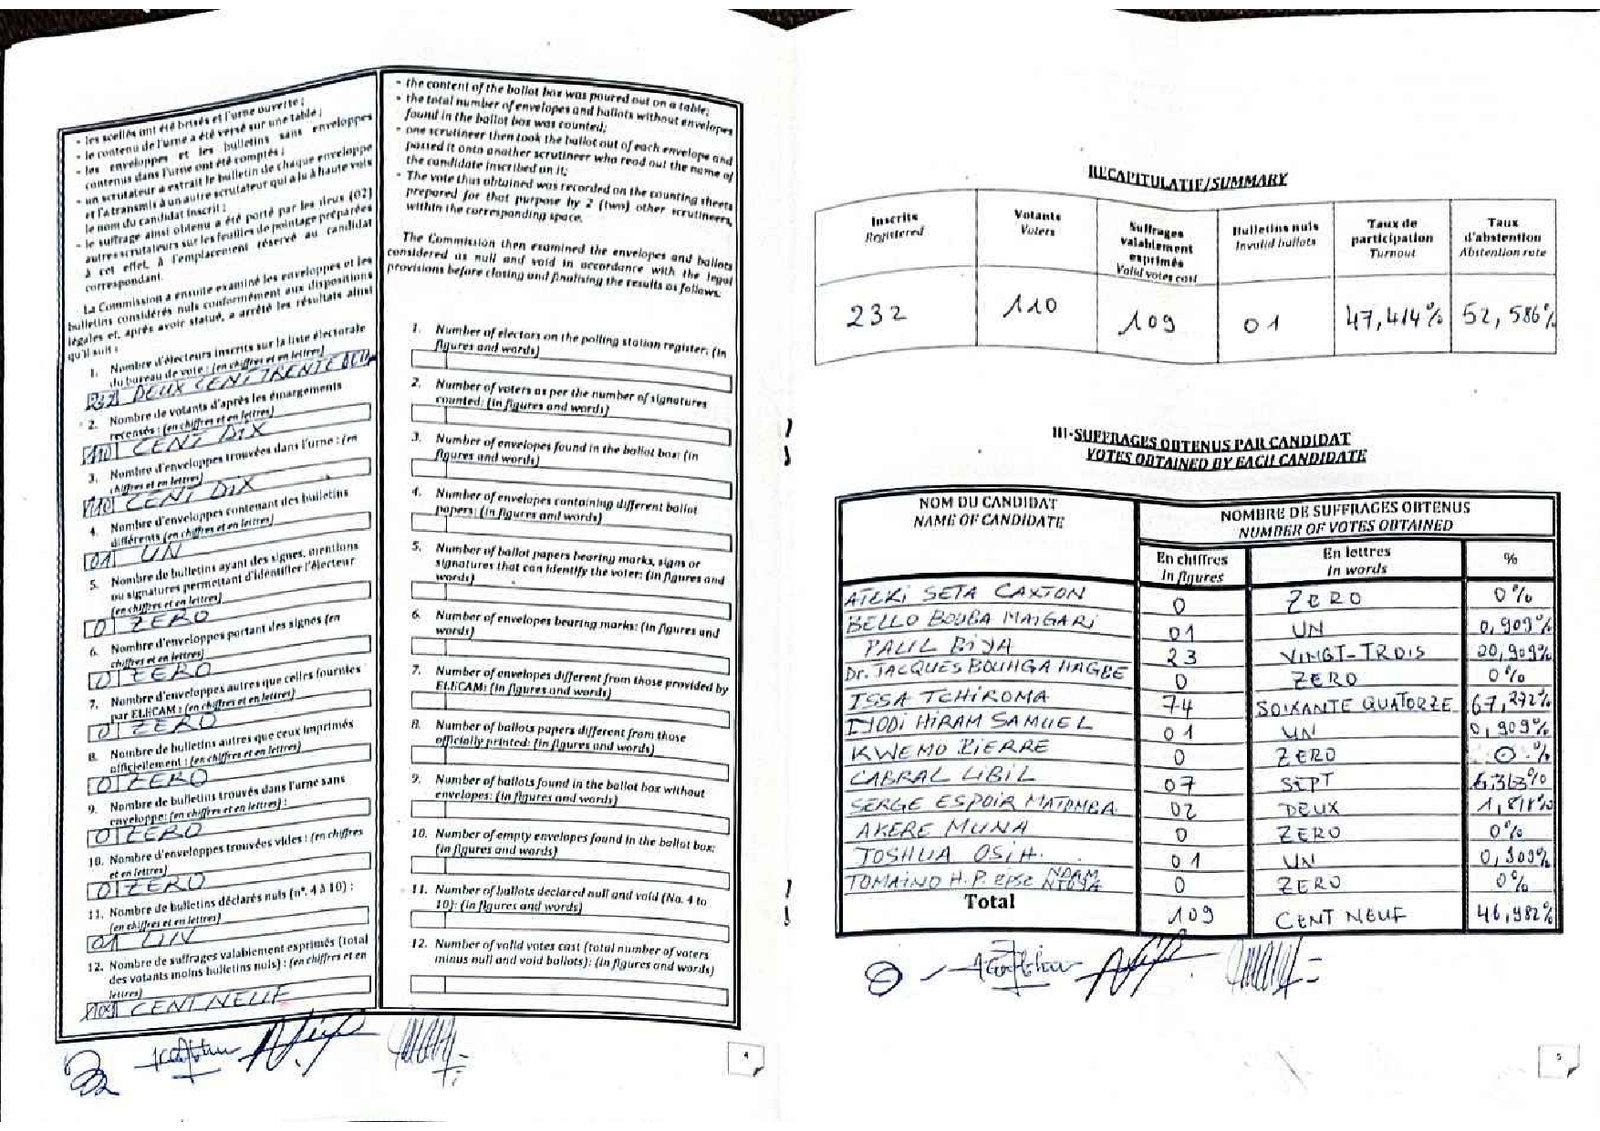 - les scellés ont été brisés et l'urne ouverte ;
- le contenu de l'urne a été versé sur une table ;
- les enveloppes et les bulletins sans enveloppes
contenus dans l'urne ont été comptés ;
- un scrutateur a extrait le bulletin de chaque enveloppe
et l'a transmis à un autre scrutateur qui a lu à haute voix
le nom du candidat inscrit ;
- le suffrage ainsi obtenu a été porté par les deux (02)
autres scrutateurs sur les feuilles de pointage préparées
à cet effet, à l'emplacement réservé au candidat
correspondant.
La Commission a ensuite examiné les enveloppes et les
bulletins considérés nuls conformément aux dispositions
légales et, après avoir statué, a arrêté les résultats ainsi
qu'il suit :
1. Nombre d'électeurs inscrits sur la liste électorale
du bureau de vote : (en chiffres et en lettres)
232 DEUX CENT TRENTE DEUX
2. Nombre de votants d'après les émargements
recensés : (en chiffres et en lettres)
110 CENT DIX
3. Nombre d'enveloppes trouvées dans l'urne : (en
chiffres et en lettres)
110 CENT DIX
4. Nombre d'enveloppes contenant des bulletins
différents (en chiffres et en lettres)
01 UN
5. Nombre de bulletins ayant des signes, mentions
ou signatures permettant d'identifier l'électeur
(en chiffres et en lettres)
0 ZERO
6. Nombre d'enveloppes portant des signes (en
chiffres et en lettres)
0 ZERO
7. Nombre d'enveloppes autres que celles fournies
par ELECAM : (en chiffres et en lettres)
0 ZERO
8. Nombre de bulletins autres que ceux imprimés
officiellement : (en chiffres et en lettres)
0 ZERO
9. Nombre de bulletins trouvés dans l'urne sans
enveloppe: (en chiffres et en lettres) :
0 ZERO
10. Nombre d'enveloppes trouvées vides : (en chiffres
et en lettres)
0 ZERO
11. Nombre de bulletins déclarés nuls (n°. 4 à 10) :
(en chiffres et en lettres)
01 UN
12. Nombre de suffrages valablement exprimés (total
des votants moins bulletins nuls) : (en chiffres et en
lettres)
109 CENT NEUF
- the content of the ballot box was poured out on a table;
- the total number of envelopes and ballots without envelopes
found in the ballot box was counted;
- one scrutineer then took the ballot out of each envelope and
passed it onto another scrutineer who read out the name of
the candidate inscribed on it;
- The vote thus obtained was recorded on the counting sheets
prepared for that purpose by 2 (two) other scrutineers,
within the corresponding space.
The Commission then examined the envelopes and ballots
considered as null and void in accordance with the legal
provisions before closing and finalising the results as follows:
1. Number of electors on the polling station register: (in
figures and words)
2. Number of voters as per the number of signatures
counted: (in figures and words)
3. Number of envelopes found in the ballot box: (in
figures and words)
4. Number of envelopes containing different ballot
papers: (in figures and words)
5. Number of ballot papers bearing marks, signs or
signatures that can identify the voter: (in figures and
words)
6. Number of envelopes bearing marks: (in figures and
words)
7. Number of envelopes different from those provided by
ELECAM: (in figures and words)
8. Number of ballots papers different from those
officially printed: (in figures and words)
9. Number of ballots found in the ballot box without
envelopes: (in figures and words)
10. Number of empty envelopes found in the ballot box:
(in figures and words)
11. Number of ballots declared null and void (No. 4 to
10): (in figures and words)
12. Number of valid votes cast (total number of voters
minus null and void ballots): (in figures and words)
4
RECAPITULATIF/SUMMARY
Inscrits Registered
Votants Voters
Suffrages valablement exprimés Valid votes cast
Bulletins nuls Invalid ballots
Taux de participation Turnout
Taux d'abstention Abstention rate
232 110 109 01 47,414% 52,586%
III-SUFFRAGES OBTENUS PAR CANDIDAT
VOTES OBTAINED BY EACH CANDIDATE
NOM DU CANDIDAT NOMBRE DE SUFFRAGES OBTENUS
NAME OF CANDIDATE NUMBER OF VOTES OBTAINED
En chiffres En lettres %
In figures In words
ATEKI SETA CAXTON 0 ZERO 0%
BELLO BOUBA MAIGARI 01 UN 0,909%
PAUL BIYA 23 VINGT-TROIS 20,909%
Dr. JACQUES BOUHGA HAGBE 0 ZERO 0%
ISSA TCHIROMA 74 SOIXANTE QUATORZE 67,272%
IYODI HIRAM SAMUEL 01 UN 0,909%
KWEMO PIERRE 0 ZERO 0 %
CABRAL LIBIL 07 SEPT 6,363%
SERGE ESPOIR MATOMBA 02 DEUX 1,818%
AKERE MUNA 0 ZERO 0%
JOSHUA OSIH. 01 UN 0,909%
TOMAINO H.P. epse NDAM NJOYA 0 ZERO 0%
Total 109 CENT NEUF 46,982%
5